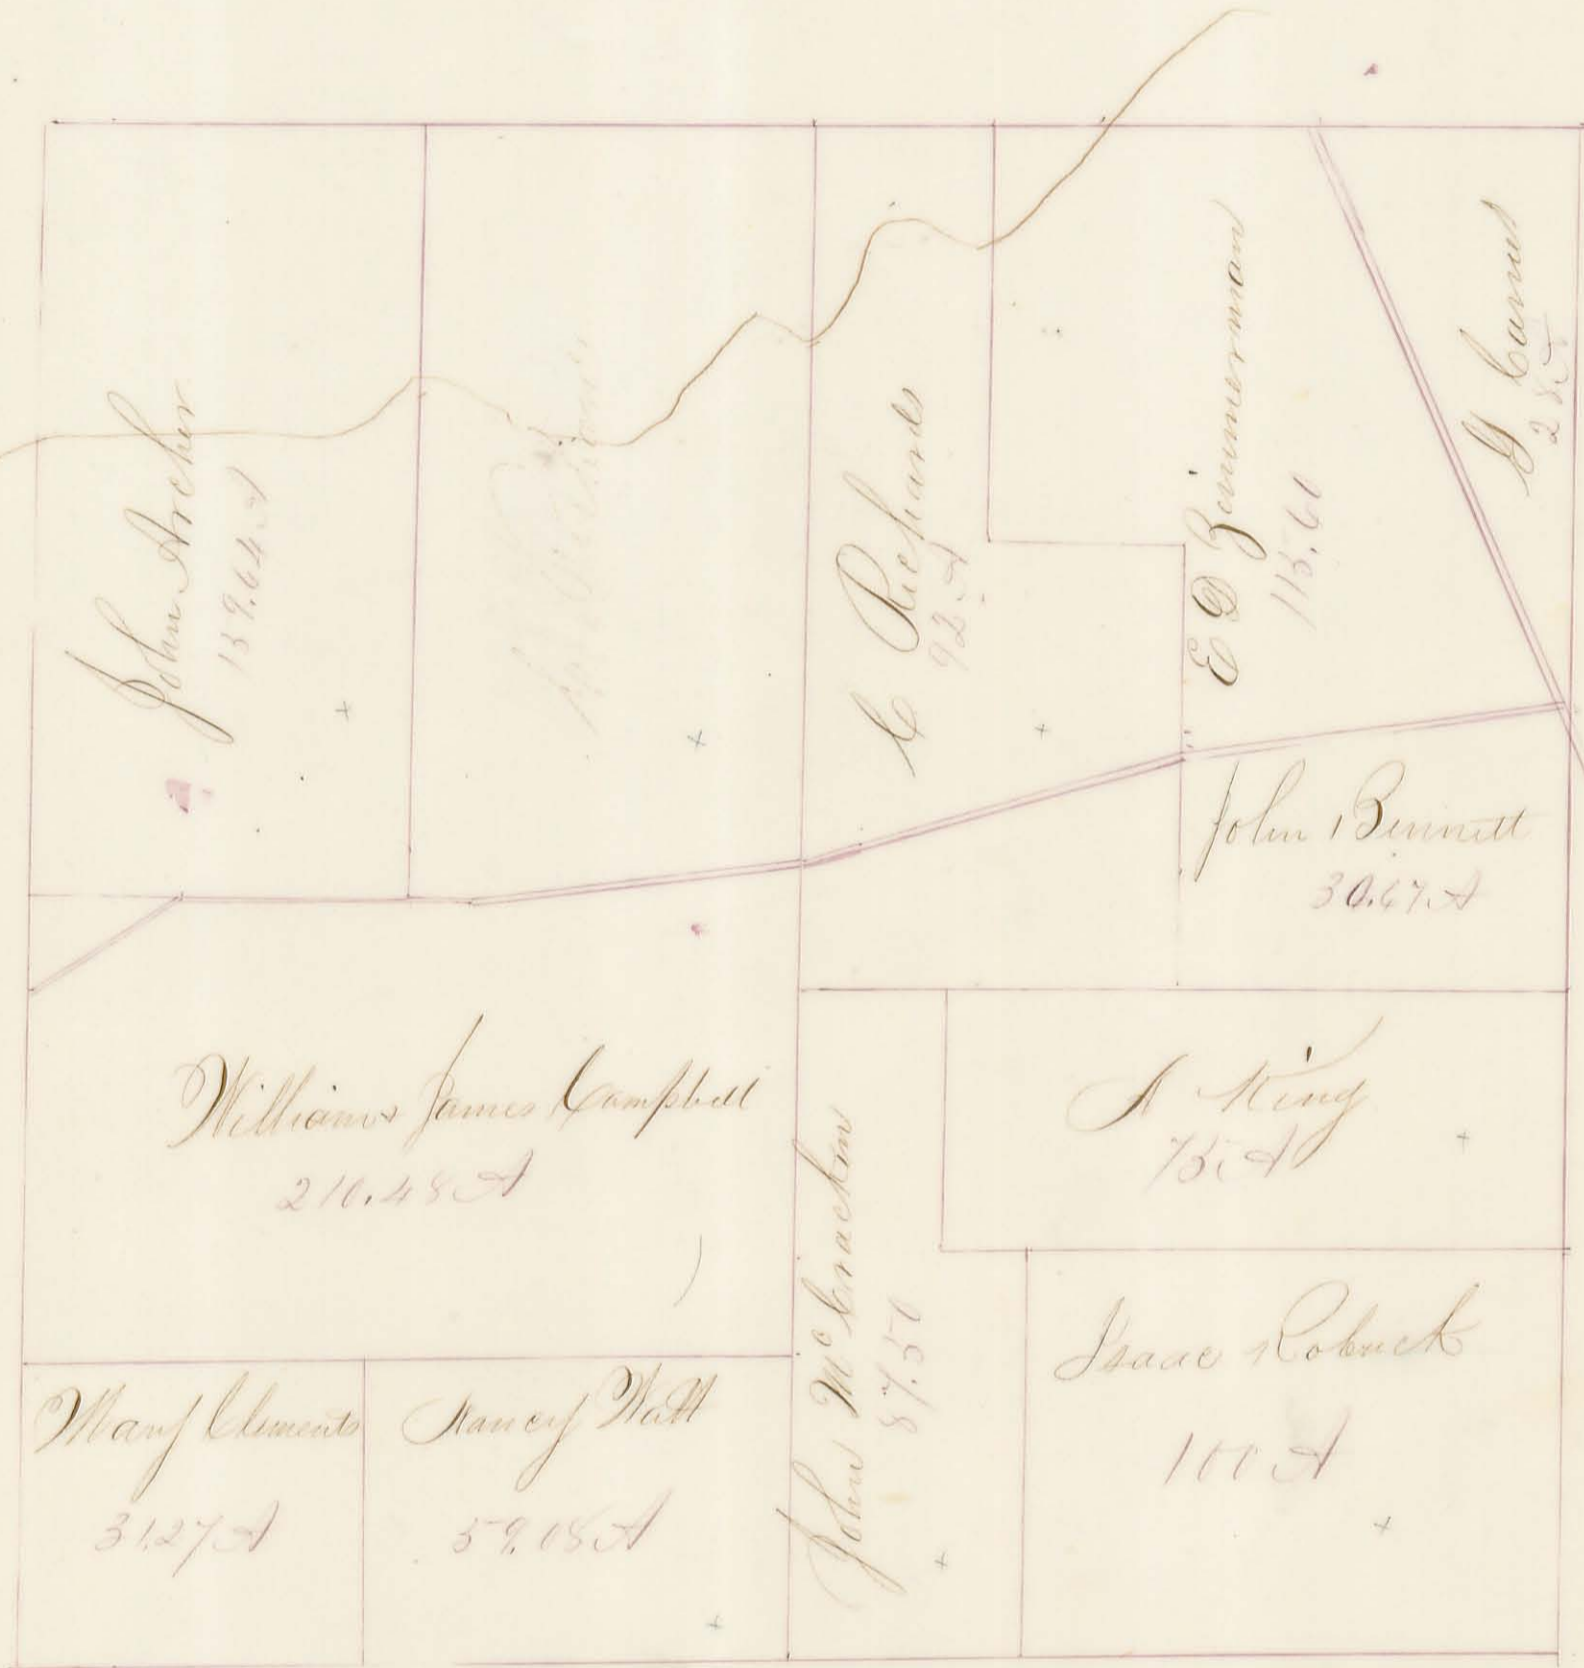 John Archer
139.64 A
C Richards
92 A
E D Zimmerman
115.60
G
28 A
John Bennett
30.67. A
William & James Campbell
210.48 A
A King
75 A
John McCrackin
87.50
Isaac Robuck
100 A
Mary Clements
31.27 A
Nancy Watt
59.08 A